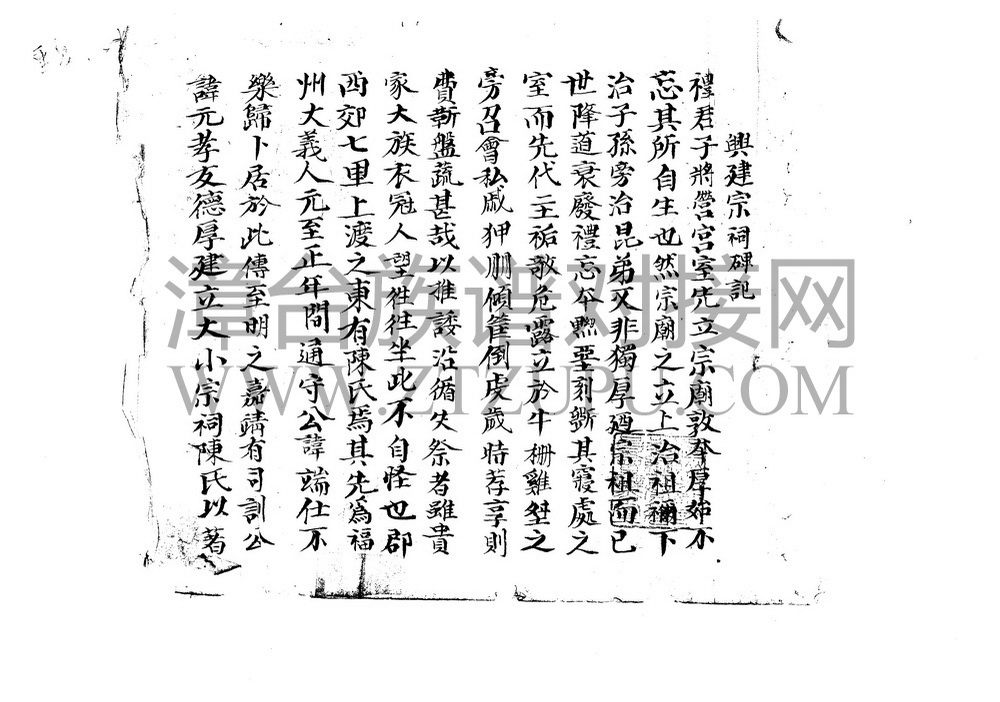 興建宗祠碑記
禮君子將營宮室先立宗廟敦夲厚始不
忘其所自生也然宗廟之立上治祖禰下
治子孫旁治昆弟又非獨厚廼宗祖而已
世降道衰廢禮忘夲黝堊刻斲其寢處之
室而先代主祏敧危露立於牛柵雞塒之
旁召會私戚狎朋傾隺倒虔歲時荐享則
費靳盤蔬甚哉以推諉沿循失祭者雖貴
家大族衣冠人望徃徃坐此不自怪也郡
西郊七里上渡之東有陳氏焉其先爲福
州大義人元至正年間通守公諱端仕不
樂歸卜居於此傳至明之嘉靖有司訓公
諱元孝友德厚建立大小宗祠陳氏以著
漳台族谱对接网
WWW.ZTZUPU.COM